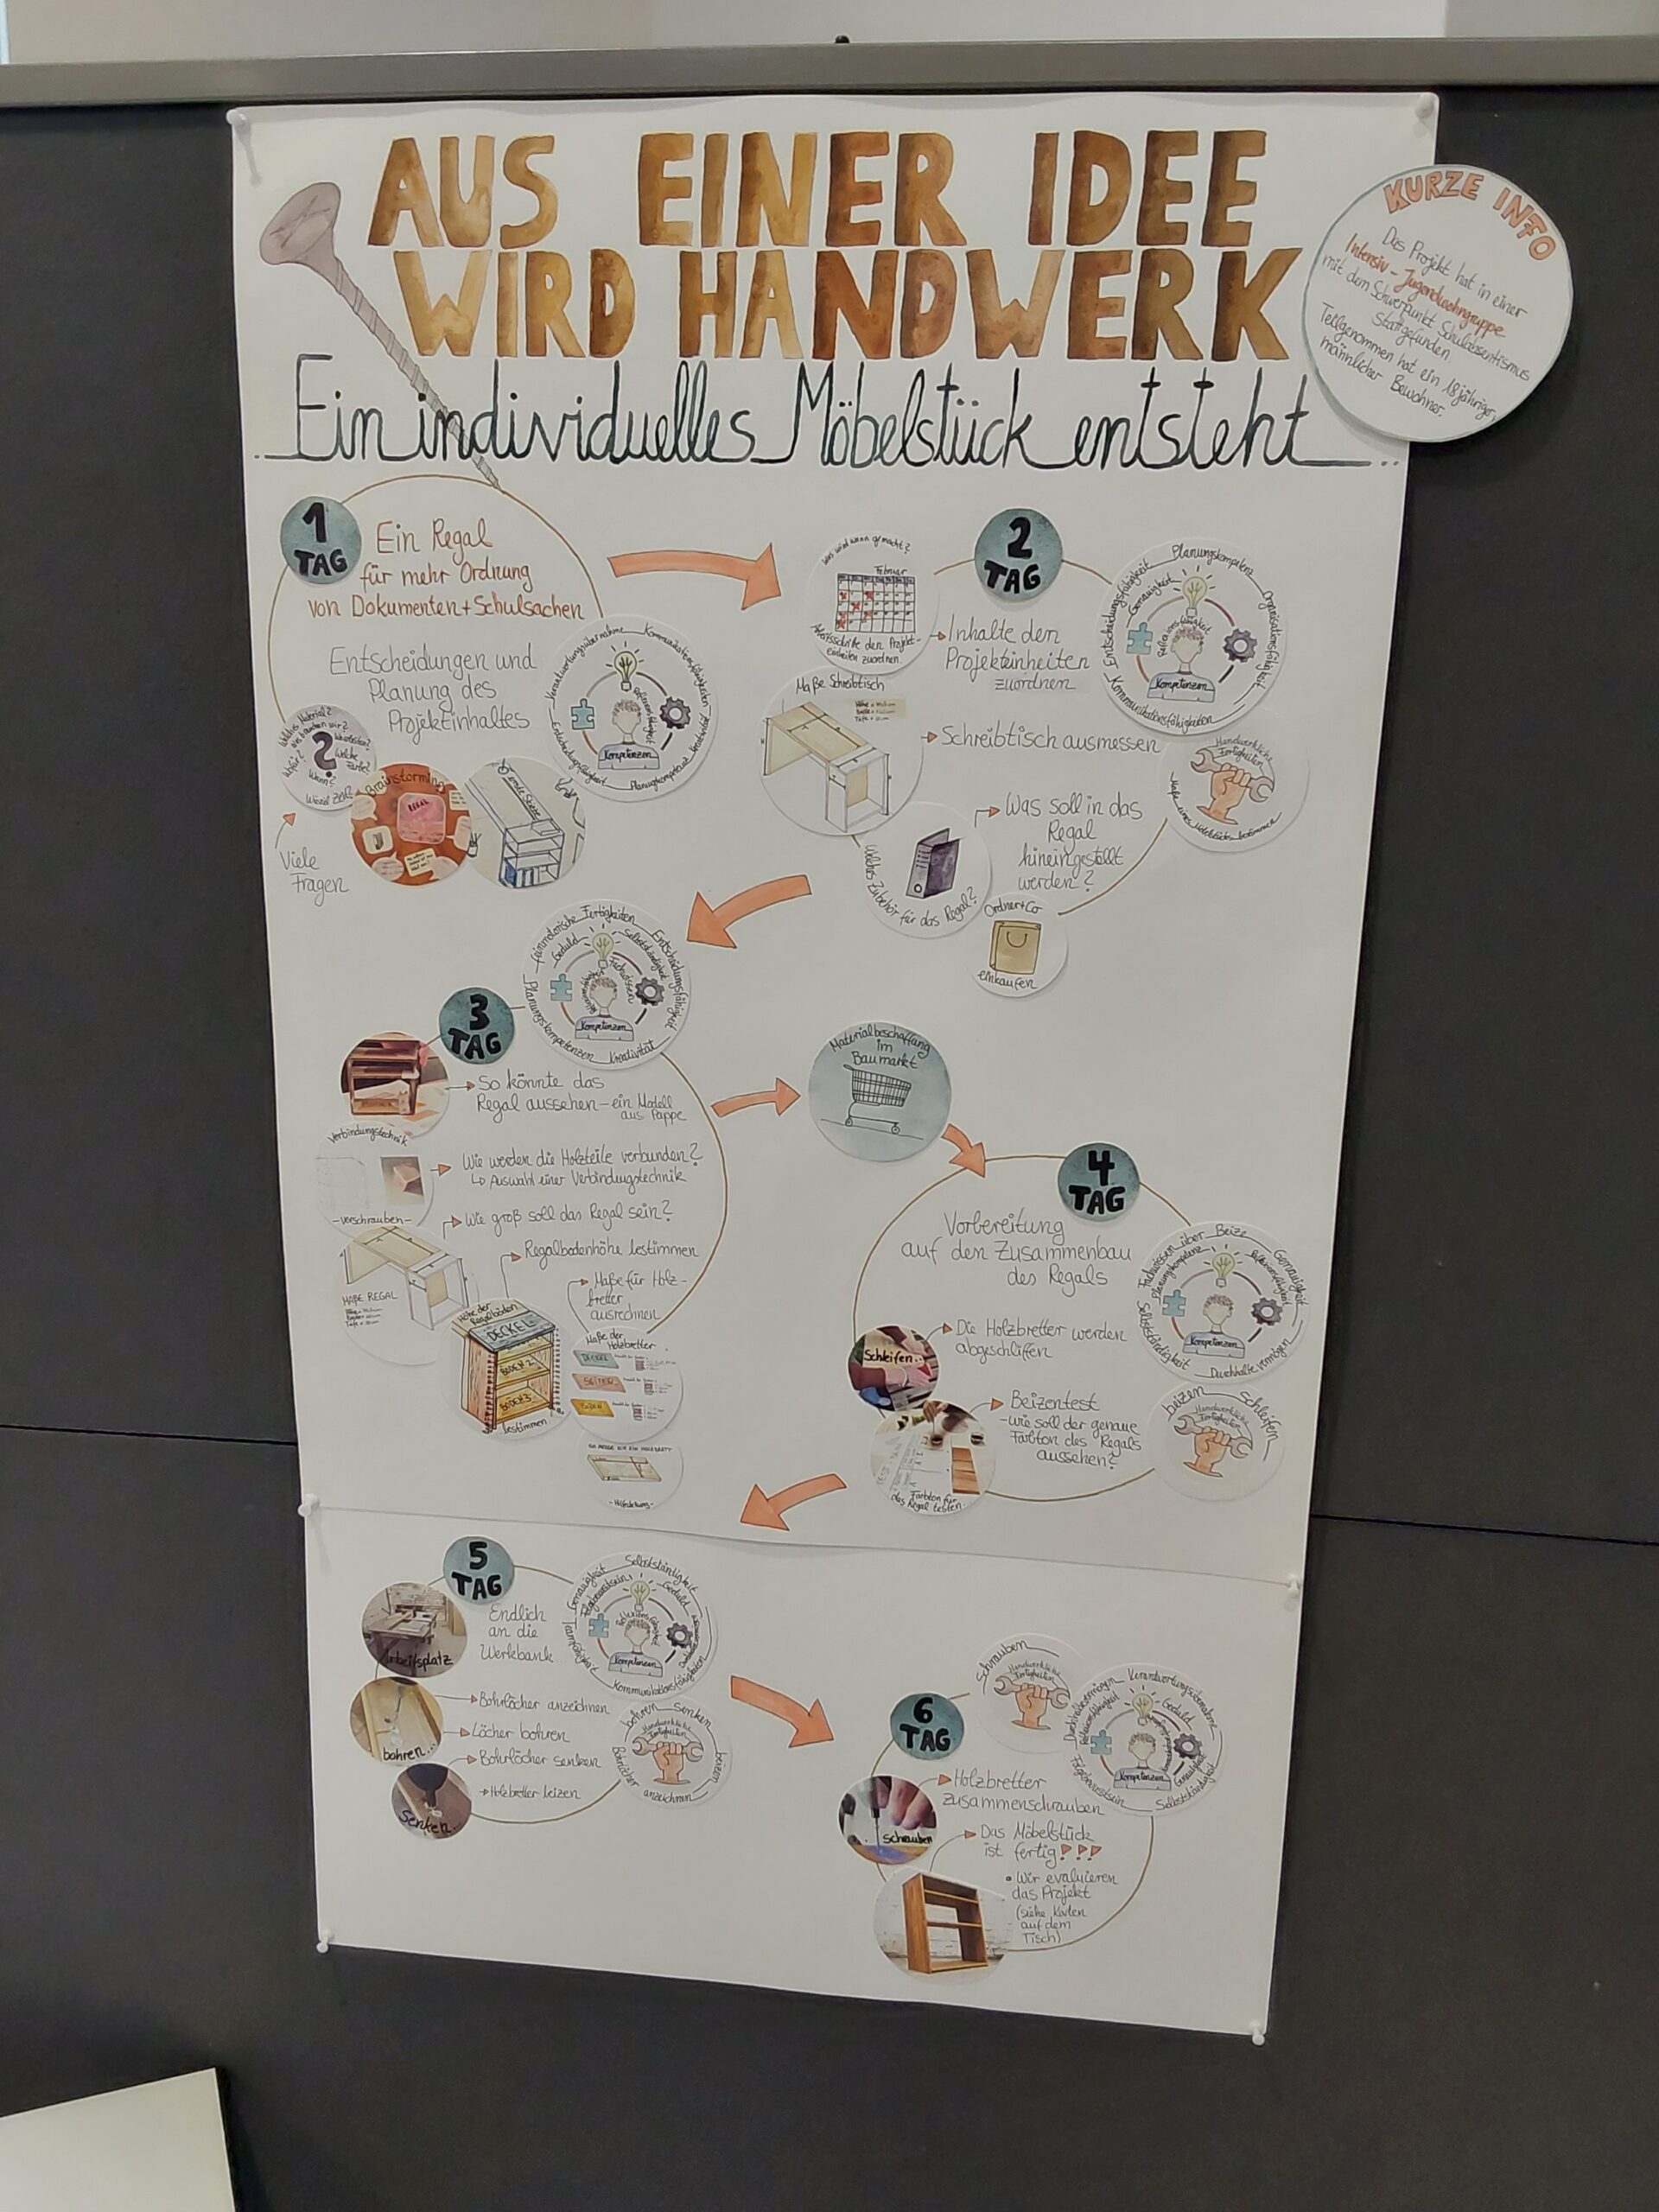 AUS EINER IDEE
WIRD HANDWERK
Ein individuelles Möbelstück entsteht...
KURZE INFO
Das Projekt hat in einer
Intensiv-Jugendwohngruppe
mit dem Schwerpunkt Schulabsentismus
stattgefunden.
Teilgenommen hat ein 18 jähriger,
männlicher Bewohner.
1
TAG
Ein Regal
für mehr Ordnung
von Dokumenten + Schulsachen
Entscheidungen und
Planung des
Projekteinhaltes
Verantwortungsübernahme
Kommunikationsfähigkeiten
Planungskompetenz
Entscheidungsfähigkeit
Kompetenzen
Welches Material?
Wofür?
Welche
Farbe?
Wann?
?
Viele
Fragen
Brainstorming
REGAL
erste Skizze
2
TAG
Was wird wann gemacht?
Februar
Arbeitsschritte den Projekt-
einheiten zuordnen.
Inhalte den
Projekteinheiten
zuordnen
Planungskompetenz
Organisationsfähigkeit
Entscheidungsfähigkeit
Genauigkeit
Reflexionsfähigkeit
Kommunikationsfähigkeiten
Kompetenzen
Maße Schreibtisch
Schreibtisch ausmessen
Handwerkliche
Fertigkeiten
Maße eines Möbelstücks bestimmen
Was soll in das
Regal
hineingestellt
werden?
Welches Zubehör für das Regal?
Ordner+Co
einkaufen
3
TAG
feinmotorische Fertigkeiten
Entscheidungsfähigkeit
Geduld
Selbstständigkeit
Fachwissen
Planungskompetenzen
Kreativität
Kompetenzen
So könnte das
Regal aussehen - ein Modell
aus Pappe
Verbindungstechnik
-verschrauben-
Wie werden die Holzteile verbunden?
↳ Auswahl einer Verbindungstechnik
Wie groß soll das Regal sein?
MAßE REGAL
Regalbodenhöhe bestimmen
Höhe der
Regalböden
DECKEL
BODEN 2
BODEN 3
bestimmen
Maße für Holz-
bretter
ausrechnen
Maße der
Holzbretter
DECKEL
SEITEN
BODEN
-Hilfestellung-
Materialbeschaffung
im
Baumarkt
4
TAG
Vorbereitung
auf den Zusammenbau
des Regals
Fachwissen über Beize
Genauigkeit
Planungskompetenz
Reflexionsfähigkeit
Selbstständigkeit
Durchhaltevermögen
Kompetenzen
Schleifen..
Die Holzbretter werden
abgeschliffen
Beizentest
-wie soll der genaue
Farbton des Regals
aussehen?
Farbton für
das Regal testen
beizen
Schleifen
Handwerkliche
Fertigkeiten
5
TAG
Endlich
an die
Werkbank
Arbeitsplatz
Genauigkeit
Selbstständigkeit
Geduld
Reflexionsfähigkeit
Teamfähigkeit
Kommunikationsfähigkeiten
Kompetenzen
Bohrlöcher anzeichnen
Löcher bohren
Bohrlöcher senken
Holzbretter beizen
bohren...
Senken...
bohren
senken
beizen
Bohrlöcher
anzeichnen
Handwerkliche
Fertigkeiten
6
TAG
Schrauben
Handwerkliche
Fertigkeiten
Durchhaltevermögen
Verantwortungsübernahme
Reflexionsfähigkeit
Geduld
Genauigkeit
Selbstständigkeit
Kompetenzen
Holzbretter
zusammenschrauben
schrauben
Das Möbelstück
ist fertig!!!
• Wir evaluieren
das Projekt
(siehe Karten
auf dem
Tisch)